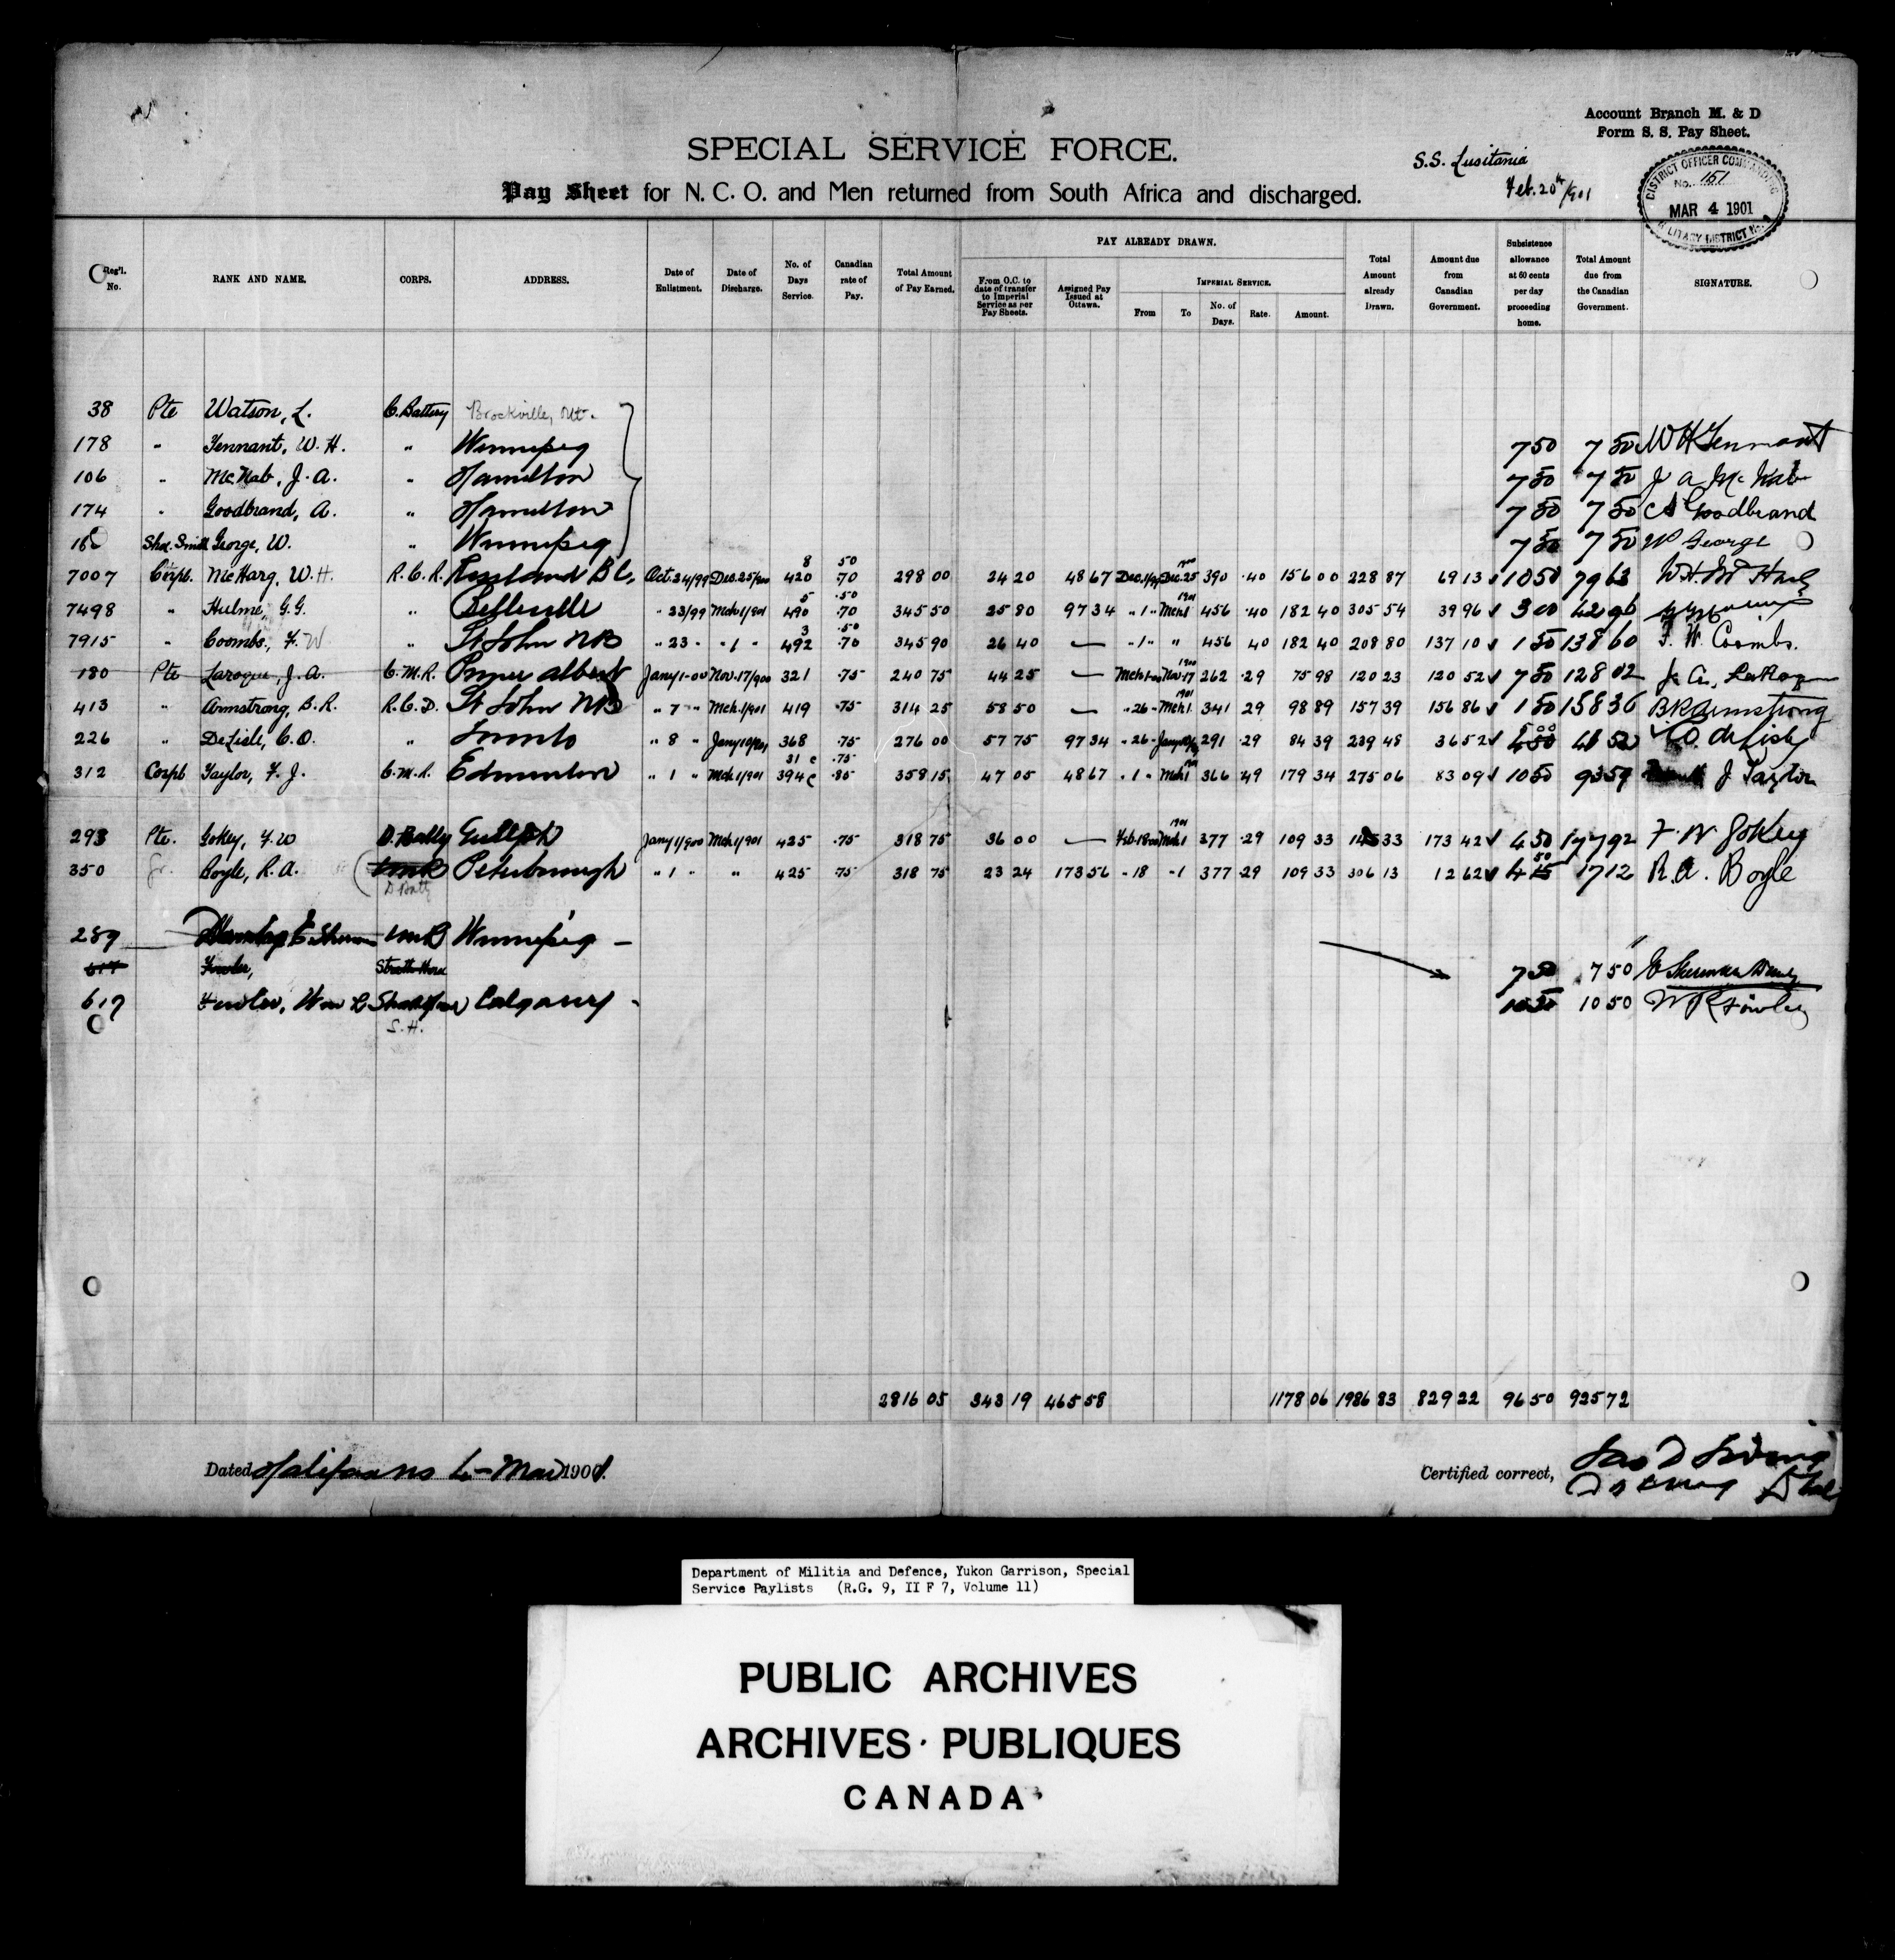 Account Branch M. & D
Form S. S. Pay Sheet.
SPECIAL SERVICE FORCE.
S.S. Lusitania
Feb. 20th/901
Pay Sheet for N. C. O. and Men returned from South Africa and discharged.
DISTRICT OFFICER COMMANDING
No. 151
MAR 4 1901
MILITARY DISTRICT No.
Reg'l. No. RANK AND NAME. CORPS. ADDRESS. Date of Enlistment. Date of Discharge. No. of Days Service. Canadian rate of Pay. Total Amount of Pay Earned. PAY ALREADY DRAWN. From O.C. to date of transfer to Imperial Service as per Pay Sheets. Assigned Pay Issued at Ottawa. IMPERIAL SERVICE. From To No. of Days. Rate. Amount. Total Amount already Drawn. Amount due from Canadian Government. Subsistence allowance at 60 cents per day proceeding home. Total Amount due from the Canadian Government. SIGNATURE.
38 Pte Watson, L. C. Battery Brockville, Ont.
178 " Tennant, W. H. " Winnipeg 7 50 7 50 W H Tennant
106 " McNab, J. A. " Hamilton 7 50 7 50 J A McNab
174 " Goodbrand, A. " Hamilton 7 50 7 50 Goodbrand
Shoe. Smith George, W. " Winnipeg 7 50 7 50 W George
7007 Corpl. McHarg, W. H. R.C.R. Rossland B C, Oct. 24/99 Dec. 25/900 8 420 50 .70 298 00 24 20 48 67 Dec. 1/99 1900 Dec. 25 390 .40 156 00 228 87 69 13 10 50 79 63 W. H. McHarg
7498 " Hulme, G. G. " Belleville " 23/99 Mch 1/901 5 490 .50 .70 345 50 25 80 97 34 " 1 " 1901 Mch 1 456 .40 182 40 305 54 39 96 3 00 42 96
7915 " Coombs, F. W " St John NB " 23 " " 1 " 3 492 .50 .70 345 90 26 40 — " 1 " " 456 40 182 40 208 80 137 10 1 50 138 60 F. W. Coombs.
180 Pte Laroque, J. A. C.M.R. Prince Albert Jany 1-00 Nov. 17/900 321 .75 240 75 44 25 — Mch 1-00 1900 Nov. 17 262 .29 75 98 120 23 120 52 7 50 128 02 J. A. LaRoque
413 " Armstrong, B. R. R.C.D. St John NB " 7 " Mch. 1/901 419 .75 314 25 58 50 — " 26 " 1901 Mch 1. 341 29 98 89 157 39 156 86 1 50 158 36 B R Armstrong
226 " DeLisle, C. O. " Toronto " 8 " Jany 10/901 368 .75 276 00 57 75 97 34 " 26 " Jany 10 291 .29 84 39 239 48 36 52 5 00 41 52 C O deLisle
312 Corpl Taylor, F. J. C.M.R. Edmonton " 1 " Mch 1/901 31 394 .75 .85 358 15 47 05 48 67 " 1 " Mch 1 366 .49 179 34 275 06 83 09 10 50 93 59 J Taylor
293 Pte. Gokey, F. W D. Batty Guelph Jany 1/900 Mch 1/901 425 .75 318 75 36 00 — Feb. 18 00 1901 Mch 1 377 .29 109 33 145 33 173 42 4 50 177 92 F. W. Gokey
350 Gr. Boyle, R. A. CMR D Batt Peterborough " 1 " " 425 .75 318 75 23 24 173 56 " 18 " 1 377 29 109 33 306 13 12 62 4 50 17 12 R. A. Boyle
289 CMR Winnipeg — 7 50 7 50
617 Fowler, Strath Horse
617 Fowler, Wm R Strath Horse S.H. Calgary 10 50 10 50 W R Fowler
2816 05 343 19 465 58 1178 06 1986 83 829 22 96 50 925 72
Dated Halifax NS 4 - Mar 1901.
Certified correct,
Department of Militia and Defence, Yukon Garrison, Special
Service Paylists (R.G. 9, II F 7, Volume 11)
PUBLIC ARCHIVES
ARCHIVES PUBLIQUES
CANADA